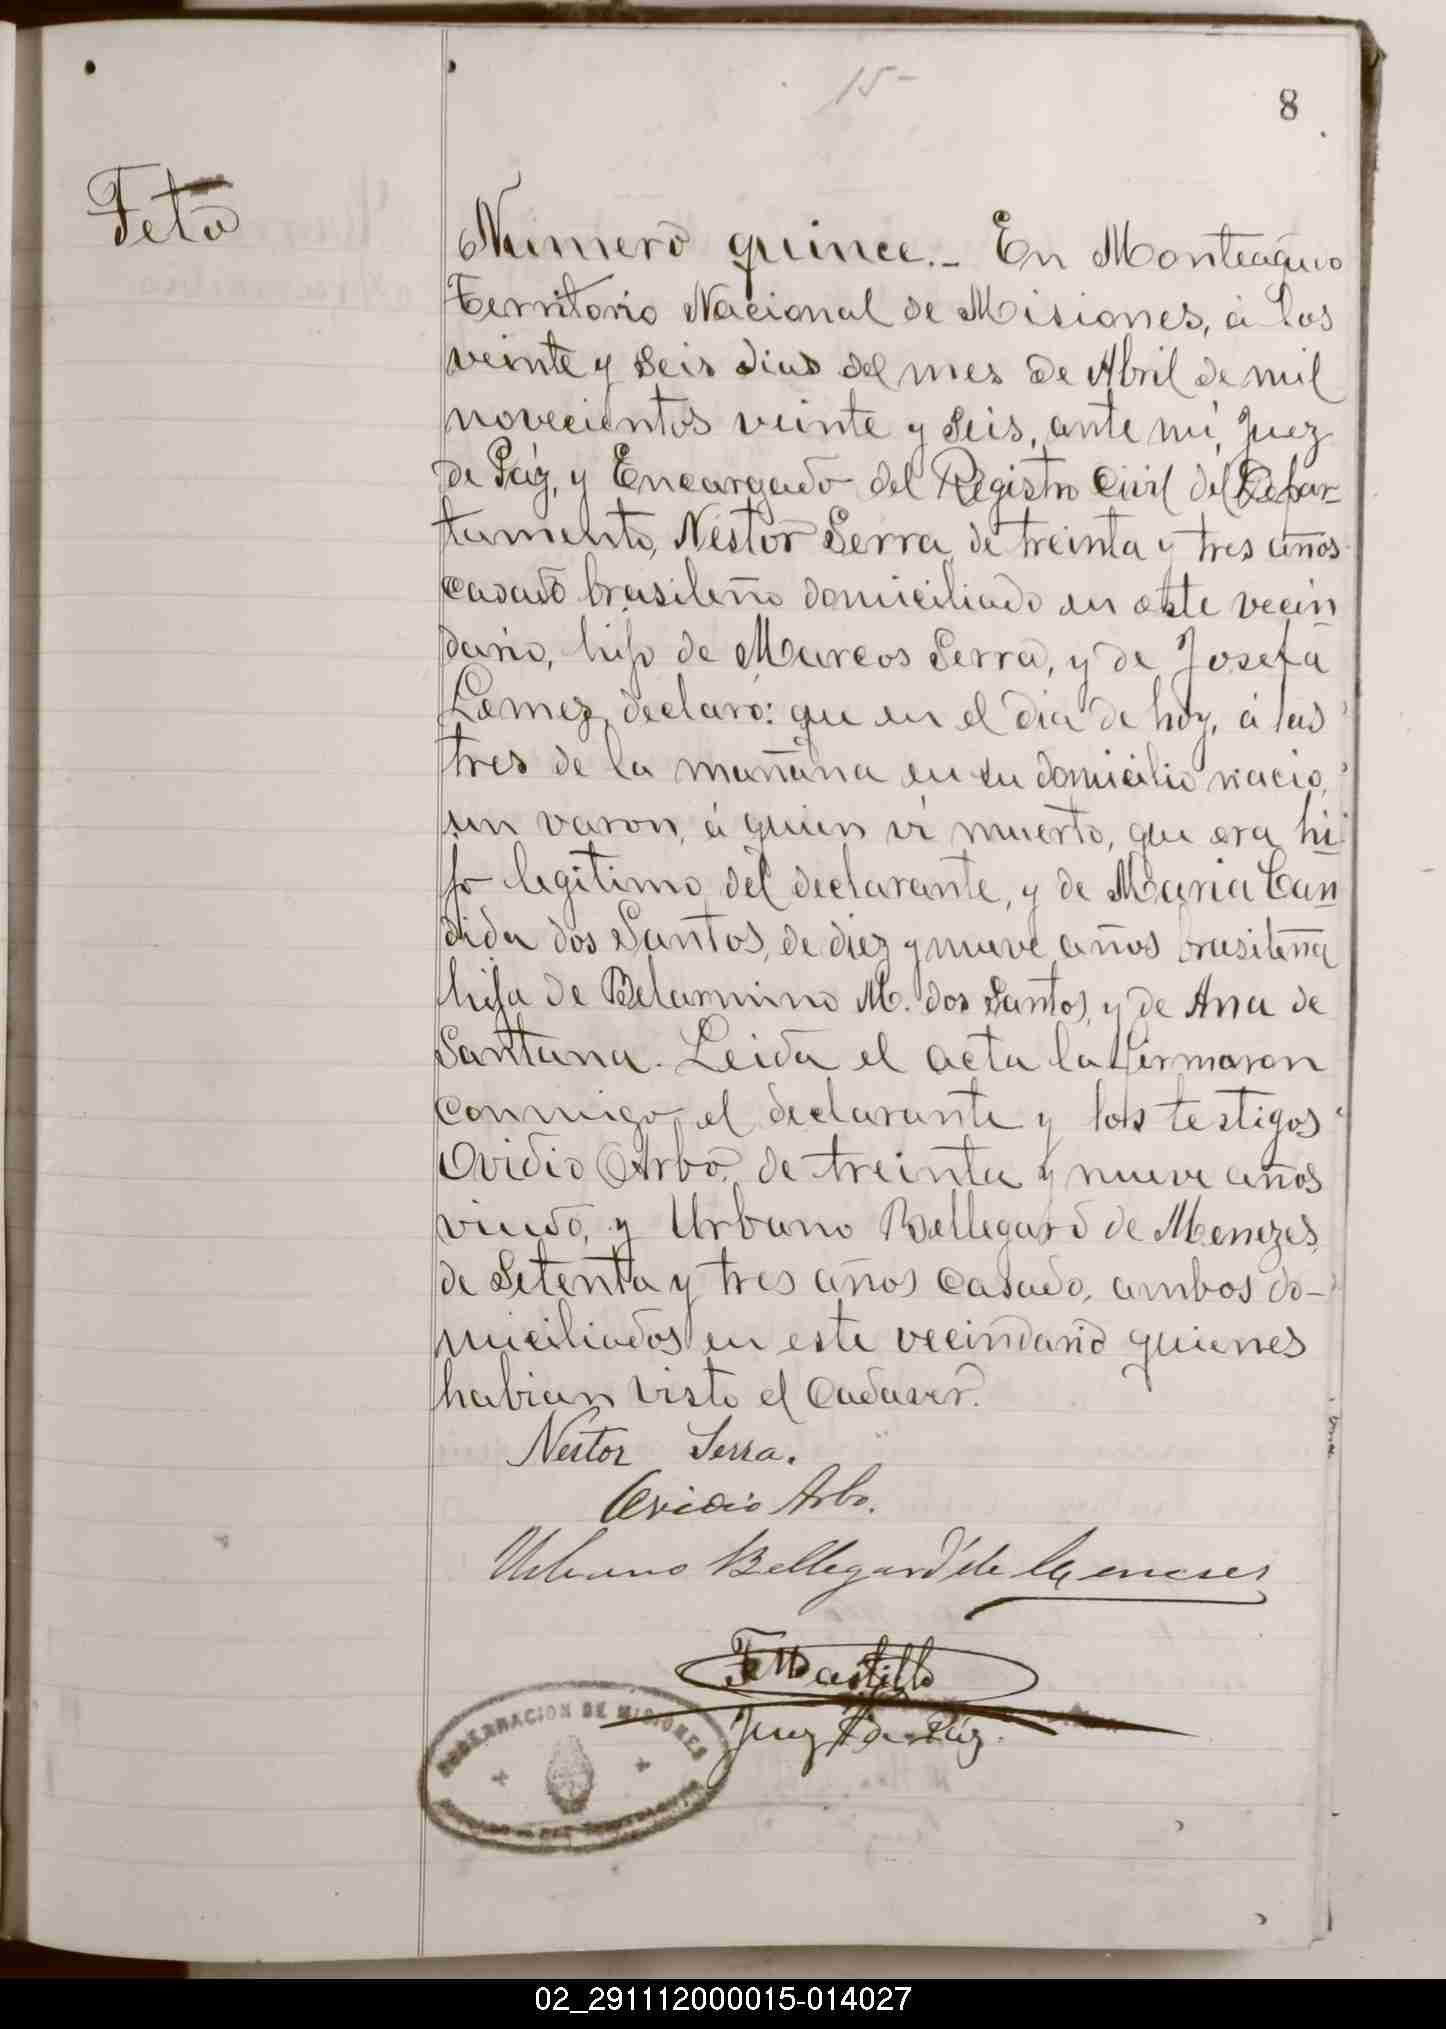 15-
8
Feto
Numero quince.- En Monteagudo
Territorio Nacional de Misiones, á los
veinte y seis dias del mes de Abril de mil
novecientos veinte y seis, ante mi, Juez
de Páz, y Encargado del Registro Civil del Depar-
tamento, Néstor Serra de treinta y tres años
casado brasileño domiciliado en este vecin
dario, hijo de Marcos Serra, y de Josefa
Lemez, declaró: que en el dia de hoy, á las
tres de la mañana en su domicilio nacio,
un varon, á quien ví muerto, que era hi
jo legitimo del declarante, y de Maria Can
dida dos Santos, de diez y nueve años brasileña
hija de Belarmino M. dos Santos, y de Ana de
Santana. Leida el acta la firmaron
conmigo el declarante y los testigos
Ovidio Arbo, de treinta y nueve años
viudo, y Urbano Bellegard de Menezes
de Setenta y tres años casado, ambos do-
miciliados en este vecindario quienes
habian visto el cadaver.
Néstor Serra.
Ovidio Arbo.
Urbano Bellegard de Meneses
Castillo
Juez de Páz.
GOBERNACION DE MISIONES
02_291112000015-014027